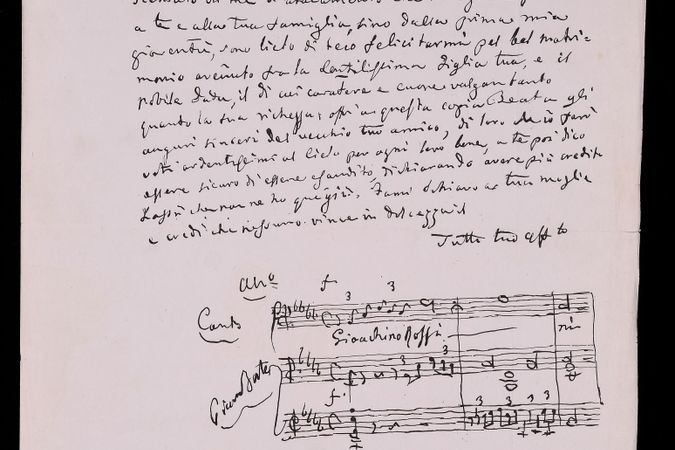 a te e alla tua famiglia, sino dalla prima mia
gioventù, sono lieto di teco felicitarmi pel bel matri-
monio avvenuto fra la Gentilissima figlia tua, e il
nobile Dadu, il di cui carattere e cuore valgon tanto
quanto la sua ricchezza; offri a questa copia Beata gli
auguri sinceri del vecchio tuo amico, di loro farò
voti ardentissimi al Cielo per ogni loro bene, a te poi dico
essere sicuro di essere esaudito, dichiarando avere più credito
Lassù che non ne ho quaggiù. Fami schiavo a tua moglie
e credi che nessuno vince in
Tutto tuo aff to
All.o
f
3
3
Canto
Gioachino Rossi
ni
3
3
Piano Forte
f.
3
3
3
3